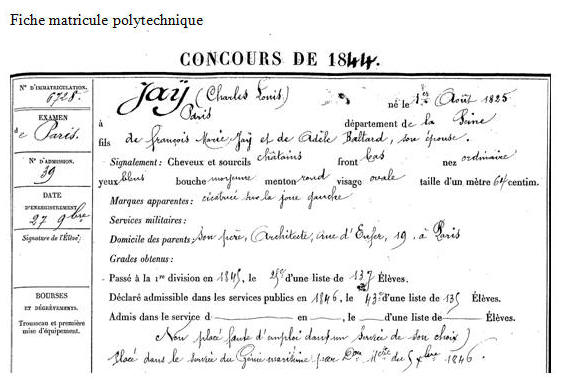 Fiche matricule polytechnique
CONCOURS DE 1844.
N° D'IMMATRICULATION.
6728.
EXAMEN
de Paris.
N° D'ADMISSION.
39
DATE
D'ENREGISTREMENT.
27 9bre
Signature de l'Élève:
BOURSES
ET DÉGRÈVEMENTS.
Trousseau et première
mise d'équipement.
Jaÿ (Charles Louis) né le 1er Août 1825
à Paris département de la Seine
fils de françois Marie Jaÿ et de Adèle Baltard, son épouse.
Signalement: Cheveux et sourcils châtains front bas nez ordinaire
yeux bleus bouche moyenne menton rond visage ovale taille d'un mètre 64 centim.
Marques apparentes: cicatrice sur la joue gauche
Services militaires:
Domicile des parents: son père, Architecte, rue d'Enfer, 19. à Paris
Grades obtenus:
Passé à la 1re division en 1845, le d'une liste de 137 Élèves.
Déclaré admissible dans les services publics en 1846, le 43e d'une liste de 135 Élèves.
Admis dans le service d en , le d'une liste de Élèves.
Non placé faute d'emploi dans un service de son choix)
Placé dans le service du Génie maritime par Don Melle du 5 Xbre 1846.